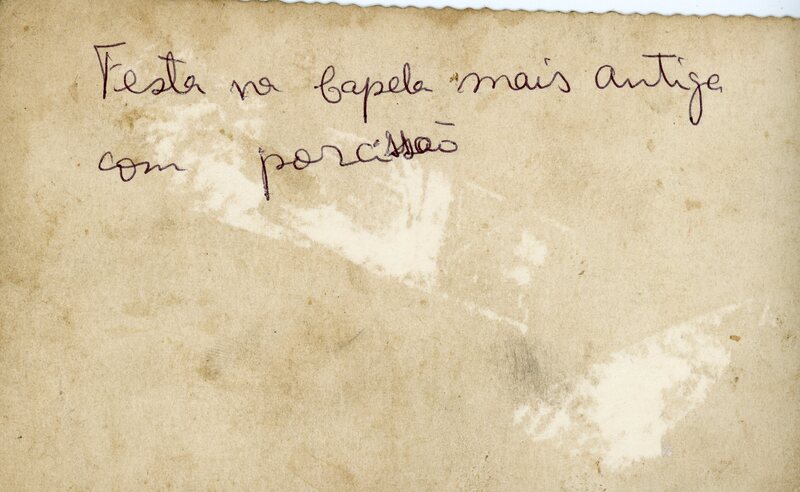 Festa na Capela mais antiga
com porcissaõ